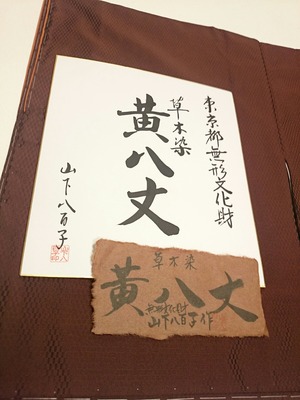 東京都無形文化財
草木染
黄八丈
山下八百子
草木染
黄八丈
無形文化財
山下八百子作